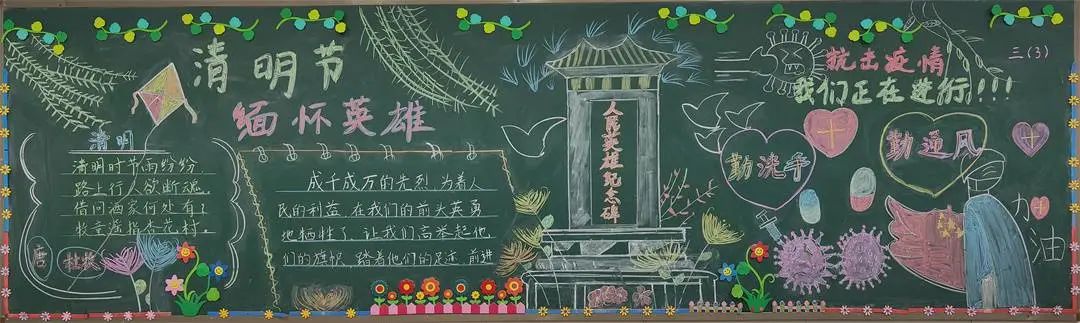 清明节
缅怀英雄
清明
清明时节雨纷纷
路上行人欲断魂,
借问酒家何处有?
牧童遥指杏花村。
唐 杜牧
成千成万的先烈,为着人
民的利益,在我们的前头英勇
地牺牲了,让我们高举起他
们的旗帜,踏着他们的足迹,前进
人民英雄纪念碑
抗击疫情
我们正在进行!!!
三(3)
勤洗手
勤通风
加油